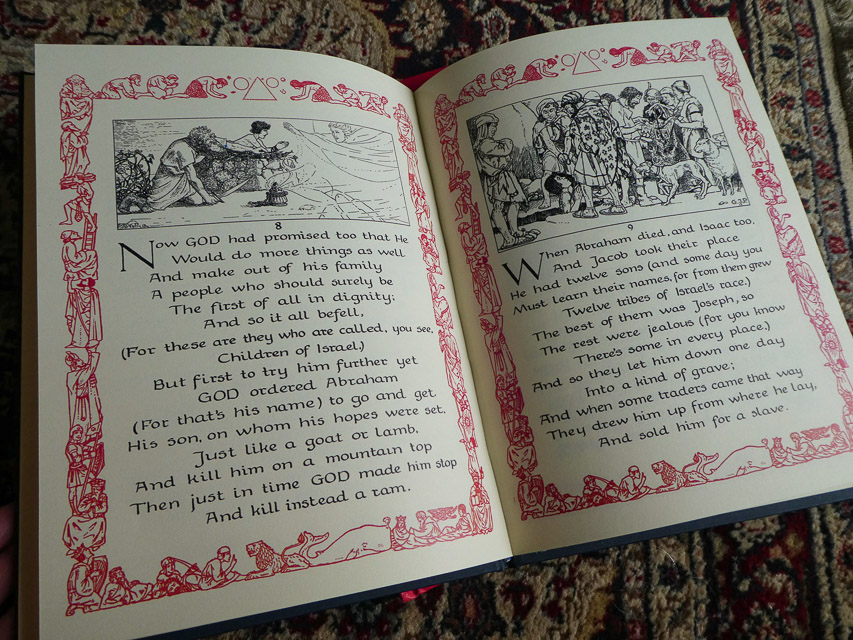 8
Now GOD had promised too that He
Would do more things as well
And make out of his family
A people who should surely be
The first of all in dignity;
And so it all befell,
(For these are they who are called, you see,
Children of Israel.)
But first to try him further yet
GOD ordered Abraham
(For that's his name) to go and get
His son, on whom his hopes were set,
Just like a goat or lamb,
And kill him on a mountain top
Then just in time GOD made him stop
And kill instead a ram.
9
When Abraham died, and Isaac too,
And Jacob took their place
He had twelve sons (and some day you
Must learn their names, for from them grew
Twelve tribes of Israel's race.)
The best of them was Joseph, so
The rest were jealous (for you know
There's some in every place.)
And so they let him down one day
Into a kind of grave;
And when some traders came that way
They drew him up from where he lay,
And sold him for a slave.